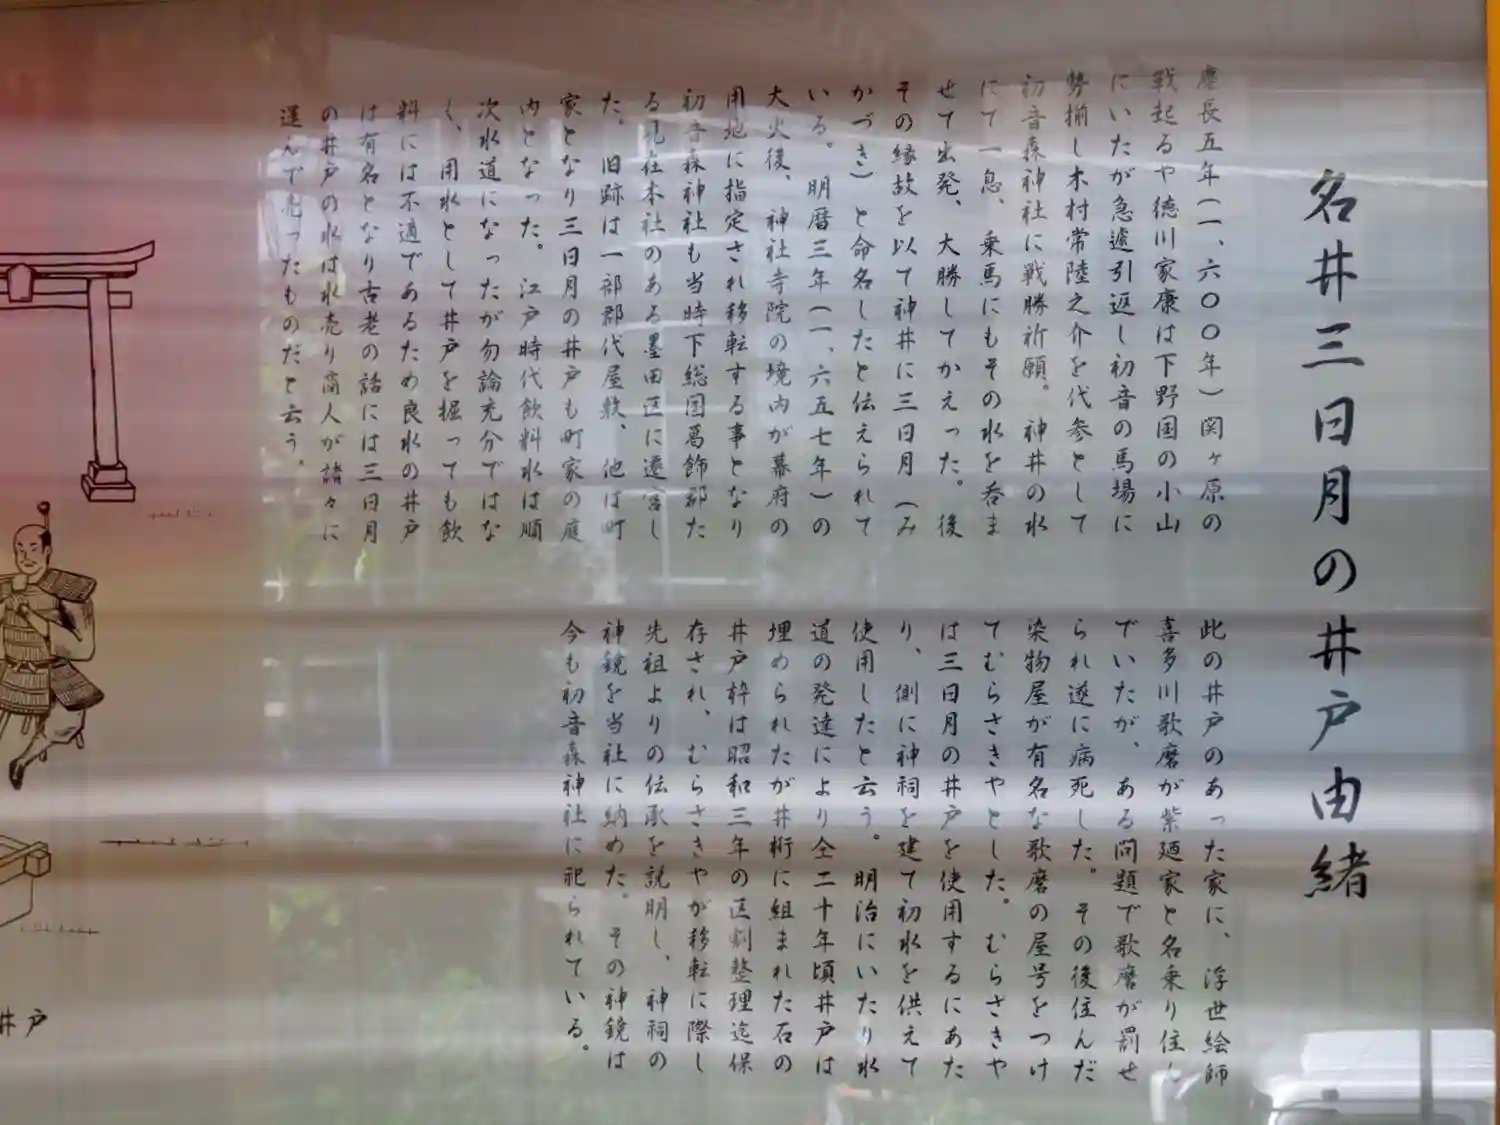 名井三日月の井戸由緒
慶長五年(一、六〇〇年)関ヶ原の
戦起るや徳川家康は下野国の小山
にいたが急遽引返し初音の馬場に
勢揃し木村常陸之介を代参として
初音森神社に戦勝祈願。神井の水
にて一息、乗馬にもその水を呑ま
せて出発、大勝してかえった。後
その縁故を以て神井に三日月(み
かづき)と命名したと伝えられて
いる。明暦三年(一、六五七年)の
大火後、神社寺院の境内が幕府の
用地に指定され移転する事となり
初音森神社も当時下総国葛飾郡た
る現在本社のある墨田区に遷宮し
た。旧跡は一部郡代屋敷、他は町
家となり三日月の井戸も町家の庭
内となった。江戸時代飲料水は順
次水道になったが勿論充分ではな
く、用水として井戸を掘っても飲
料には不適であるため良水の井戸
は有名となり古老の話には三日月
の井戸の水は水売り商人が諸々に
運んで売ったものだと云う。
此の井戸のあった家に、浮世絵師
喜多川歌麿が紫廼家と名乗り住ん
でいたが、ある問題で歌麿が罰せ
られ遂に病死した。その後住んだ
染物屋が有名な歌麿の屋号をつけ
てむらさきやとした。むらさきや
は三日月の井戸を使用するにあた
り、側に神祠を建て初水を供えて
使用したと云う。明治にいたり水
道の発達により仝二十年頃井戸は
埋められたが井桁に組まれた石の
井戸枠は昭和三年の区劃整理迄保
存され、むらさきやが移転に際し
先祖よりの伝承を説明し、神祠の
神鏡を当社に納めた。その神鏡は
今も初音森神社に祀られている。
井戸